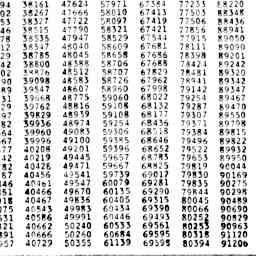 94 38161 47624 57971 67384 77253 88220
02 38267 47666 58010 67413 77503 88348
53 38327 47722 58097 67419 77506 88436
46 38515 47790 58321 67421 77856 88941
78 38535 47947 58529 67544 77915 89050
12 38547 48040 58609 67681 78111 89090
29 38785 48045 58658 67686 78398 89201
42 38800 48388 58706 67688 78424 89242
02 38876 48512 58707 67829 78481 89320
90 39098 48583 58726 67962 78941 89342
89 39547 48607 58960 67998 79142 89347
31 39968 48775 59060 68022 79254 89467
29 39762 48816 59108 68132 79287 89470
97 39829 48939 59108 68177 79307 89550
82 39936 48974 59254 68436 79371 89798
64 39960 49083 59300 68518 79384 89815
67 39996 49100 59385 68646 79496 89822
77 40208 49201 59396 68652 79522 89932
42 40219 49445 59657 68783 79653 89950
82 40426 49471 59667 68825 79819 90044
87 40456 49541 59739 69017 79830 90169
46 40461 49547 60079 69281 79835 90275
51 40466 49670 60135 69290 79844 90295
18 40467 49836 60405 69315 80045 90489
75 40543 49983 60434 69390 80066 90690
31 40586 49991 60446 69493 80252 90829
21 40662 50240 60533 69561 80253 90963
91 40666 50260 60684 69595 80318 91120
57 40729 50355 61139 69598 80394 91206